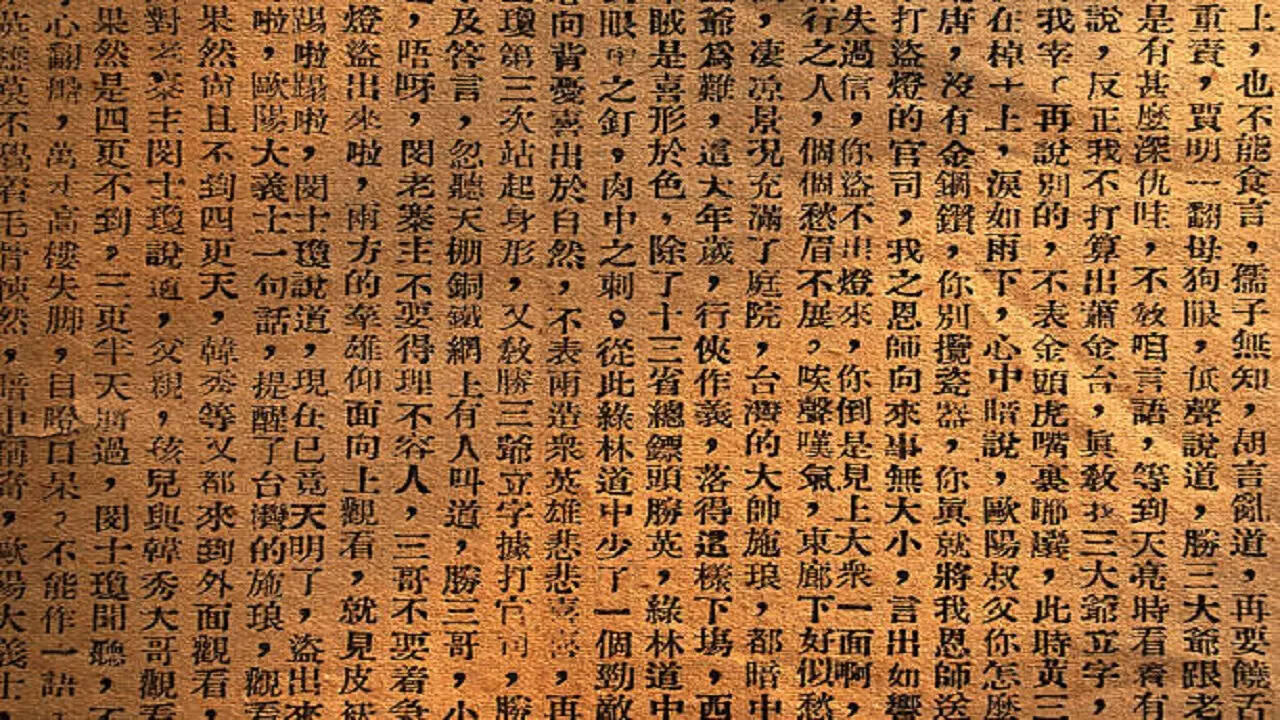 上，也不能食言，孺子無知，胡言亂道，再要饒舌
重責，賈明一翻母狗眼，低聲說道，勝三大爺跟老
是有甚麼深仇哇，不敎咱言語，等到天亮時看看有
說，反正我不打算出蕭金台，眞敎我三大爺立字，
我宰（再說別的，不表金頭虎嘴裏嘟囔，此時黃三
在棹十上，淚如雨下，心中暗說，歐陽叔父你怎麼
唐，沒有金鋼鑽，你別攬瓷器，你眞就將我恩師送
打盜燈的官司，我之恩師向來事無大小，言出如響
失過信，你盜不出燈來，你倒是見上大衆一面啊，
行之人，個個愁眉不展，唉聲嘆氣，東廊下好似愁
，凄凉景况充滿了庭院，台灣的大帥施琅，都暗中
爺爲難，這大年歲，行俠作義，落得這樣下塲，西
賊是喜形於色，除了十三省總鏢頭勝英，綠林道中
眼中之釘，肉中之刺。從此綠林道中少了一個勁敵
向背憂喜出於自然，不表兩造衆英雄悲悲喜喜，再
瓊第三次站起身形，又敎勝三爺立字據打官司，勝
及答言，忽聽天棚銅鐵網上有人叫道，勝三哥，小
，唔呀，閔老寨主不要得理不容人，三哥不要着急
燈盜出來啦，兩方的羣雄仰面向上觀看，就見皮袄
踢啦蹋啦，閔士瓊說道，現在已竟天明了，盜出來
啦，歐陽大義士一句話，提醒了台灣的施琅，觀看
果然尙且不到四更天，韓秀等又都來到外面觀看，
對老寨主閔士瓊說道，父親，孩兒與韓秀大哥觀看
果然是四更不到，三更半天將過，閔士瓊聞聽，不
心翻騰，萬丈高樓失脚，目瞪口呆，不能作一語
英雄莫不毛骨悚然，暗中稱奇，歐陽大義士